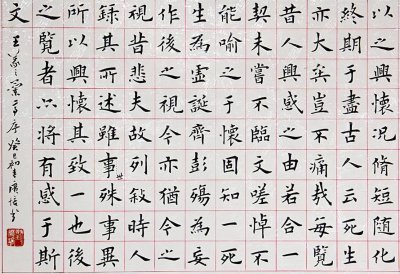 以之興懷況脩短隨化
終期于盡古人云死生
亦大矣豈不痛哉每覽
昔人興感之由若合一
契未嘗不臨文嗟悼不
能喻之于懷固知一死
生為虛誕齊彭殤為妄
作後之視今亦猶今之
視昔悲夫故列敘時人
錄其所述雖事世殊事異
所以興懷其致一也後
之覽者亦將有感于斯
文
王羲之蘭亭序癸巳初